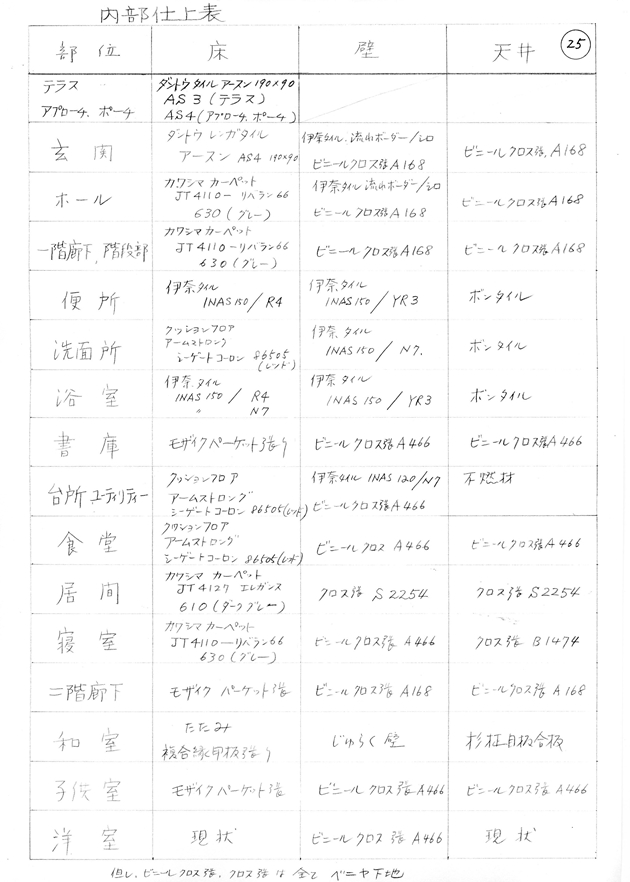 内部仕上表
部位 床 壁 天井 25
テラス
アプローチ、ポーチ
ダントウタイル アースン 190×90
AS3(テラス)
AS4(アプローチ、ポーチ)
玄関
ダントウ レンガタイル
アースン AS4 190×90
伊奈タイル、流れボーダー/シロ
ビニールクロス張A168
ビニールクロス張A168
ホール
カワシマ カーペット
JT4110-リベラン66
630(グレー)
伊奈タイル 流れボーダー/シロ
ビニールクロス張A168
ビニールクロス張A168
一階廊下、階段部
カワシマカーペット
JT4110-リベラン66
630(グレー)
ビニールクロス張A168
ビニールクロス張A168
便所
伊奈タイル
INAS150/R4
伊奈タイル
INAS150/YR3
ボンタイル
洗面所
クッションフロア
アームストロング
シーゲートコーロン 86505
(レッド)
伊奈タイル
INAS150/N7.
ボンタイル
浴室
伊奈タイル
INAS150/R4
〃 N7
伊奈タイル
INAS150/YR3
ボンタイル
書庫
モザイクパーケット張り
ビニールクロス張A466
ビニールクロス張A466
台所ユーティリティー
クッションフロア
アームストロング
シーゲートコーロン 86505(レッド)
伊奈タイル INAS120/N7
ビニールクロス張A466
不燃材
食堂
クッションフロア
アームストロング
シーゲートコーロン 86505(レッド)
ビニールクロス A466
ビニールクロス張A466
居間
カワシマ カーペット
JT4127 エレガンス
610(ダークグレー)
クロス張 S2254
クロス張 S2254
寝室
カワシマ カーペット
JT4110-リベラン66
630(グレー)
ビニールクロス張A466
クロス張 B1474
二階廊下
モザイク パーケット張
ビニールクロス張A168
ビニールクロス張A168
和室
たたみ
複合縁甲板張り
じゅらく壁
杉柾目板合板
子供室
モザイクパーケット張
ビニールクロス張A466
ビニールクロス張A466
洋室
現状
ビニールクロス張A466
現状
但し、ビニールクロス張、クロス張は全てベニヤ下地